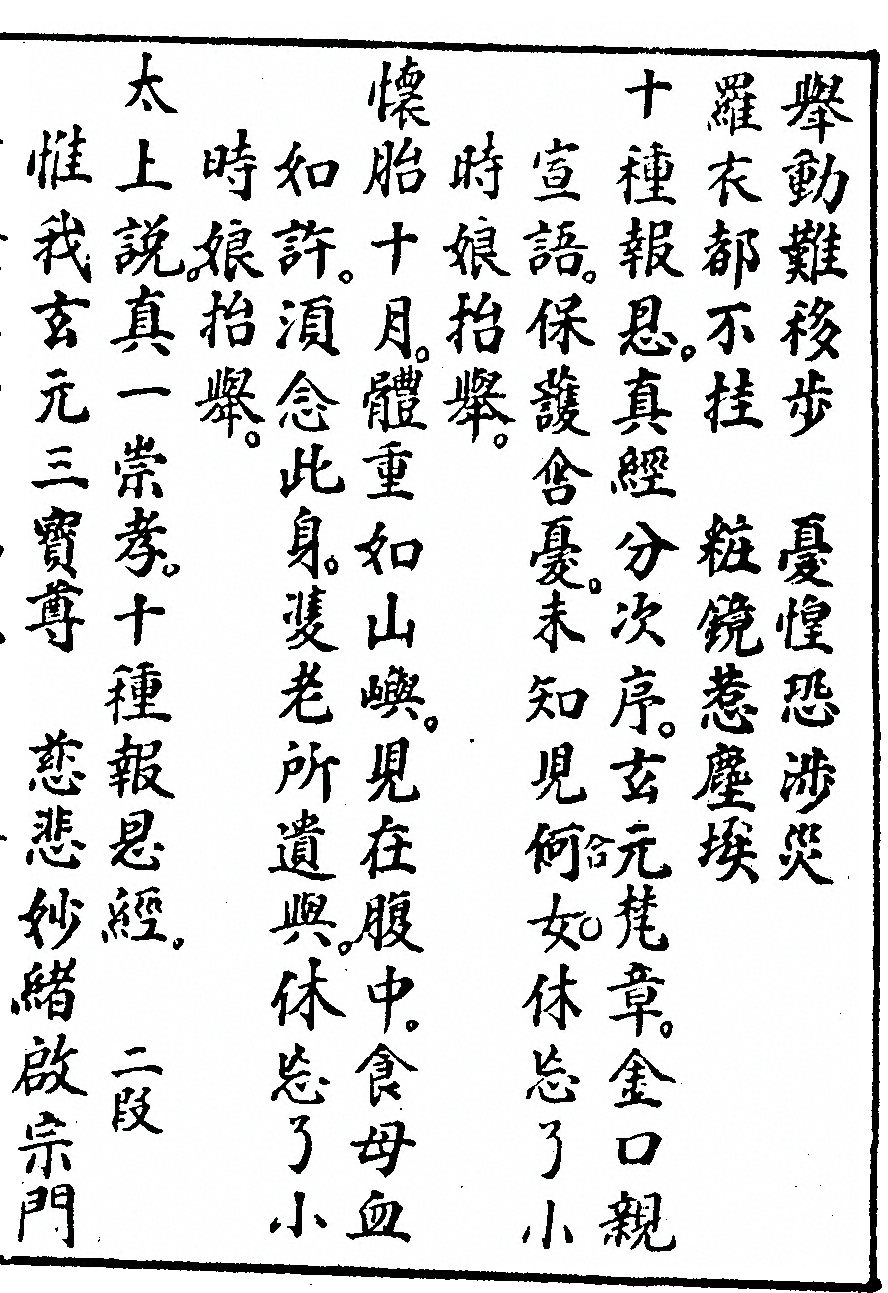 舉動難移步　憂惶恐涉災
羅衣都不挂　粧鏡惹塵埃
十種報恩。真經分次序。玄元梵章。金口親
宣語。保護含憂。未知児何合女〇休忘了小
時娘抬舉。
懷胎十月。體重如山嶼。児在腹中。食母血
如許。須念此身。雙老所遺與。休忘了小
時娘抬舉。
太上說。真一崇孝。十種報恩經。　二段
惟我玄元三寶尊　慈悲妙緒啟宗門